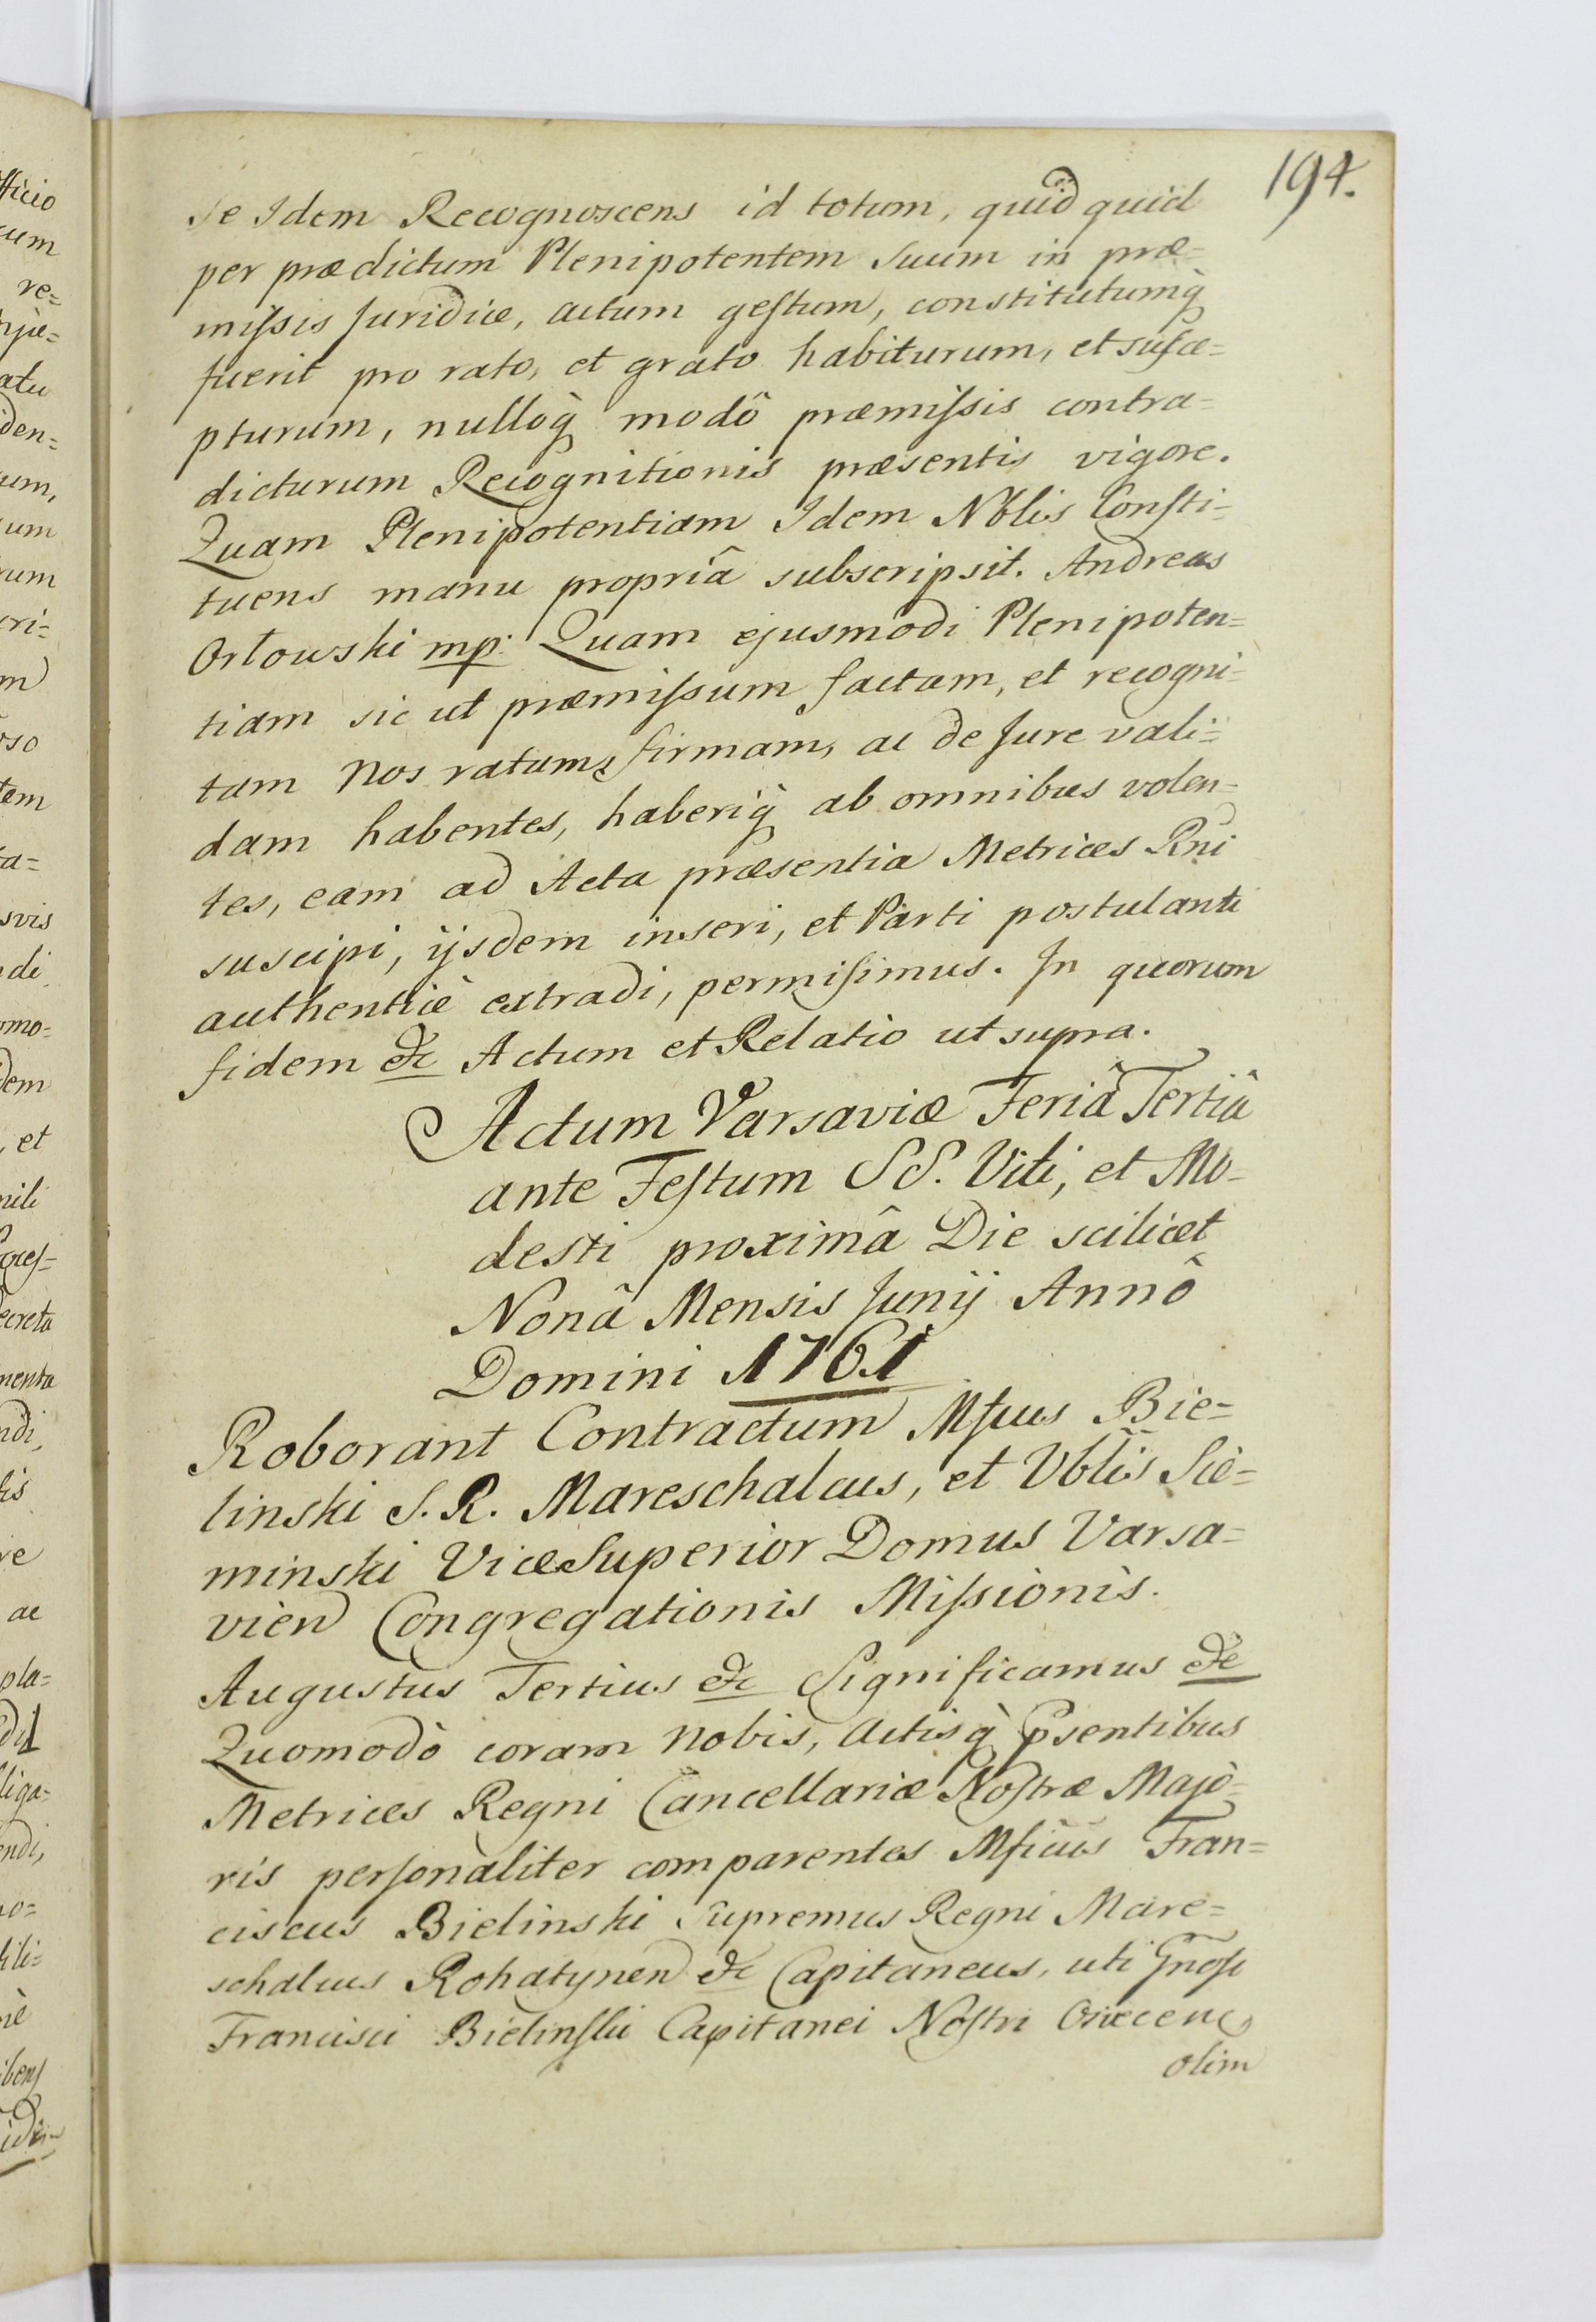 194.
se Idem Recognoscens id totum, quidquid
per prædictum Plenipotentem Suum in præ=
missis Juridice, actum gestum, constitutumq̀
fuerit pro rato, et grato habiturum, et susce=
pturum, nulloq̀ modô præmissis contra=
dicturum Recognitionis præsentis vigore.
Quam Plenipotentiam Idem Nblis Consti=
tuens manu propriâ subscripsit. Andreas
Orłowski mp: Quam ejusmodi Plenipoten=
tiam sic ut præmissum factam, et recogni=
tam Nos ratam, firmam, ac de Jure vali=
dam habentes, haberiq̀ ab omnibus volen=
tes, eam ad Acta præsentia Metrices Rni
suscipi, ijsdem inseri, et Parti postulanti
authenticè extradi, permisimus. In quorum
fidem &c Actum et Relatio ut supra.
Actum Varsaviæ Feriâ Tertiâ
ante Festum SS. Viti, et Mo=
desti proximâ Die scilicet
Nonâ Mensis Junij Annô
Domini 1761
Roborant Contractum Mfcus Bie=
linski S. R. Mareschalcus, et Vblis Sie=
minski ViceSuperior Domus Varsa=
vien Congregationis Missionis.
Augustus Tertius &c Significamus &c
Quomodò coram Nobis, Actisq̀ Psentibus
Metrices Regni Cancellariæ Nostræ Majo=
ris personaliter comparentes Mficus Fran=
ciscus Bielinski Supremus Regni Mare=
schalcus Rohatynen &c Capitaneus, uti Gnosi
Francisci Bielinski Capitanei Nostri
olim